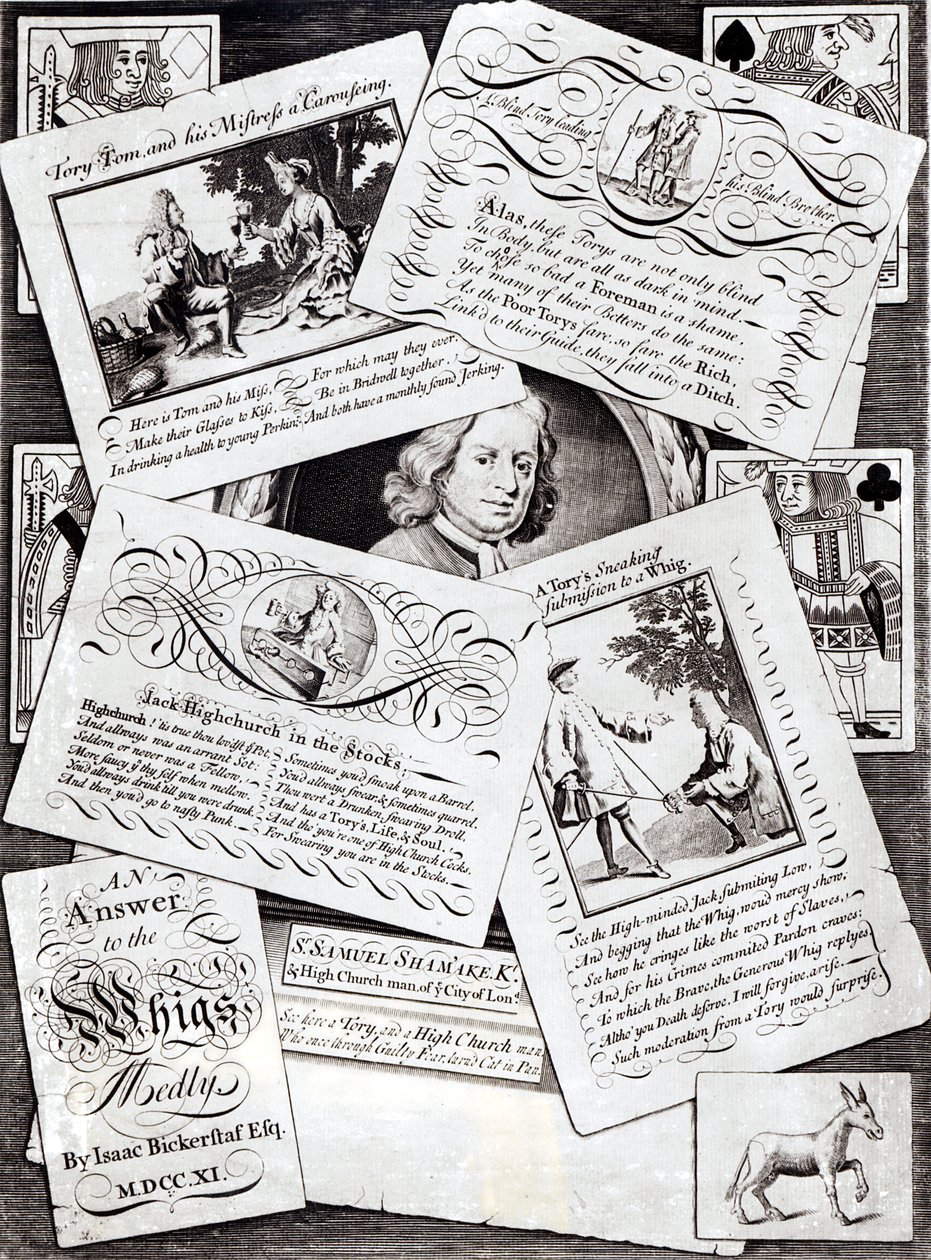 Tory Tom, and his Miſtreſs a Carouſeing.
Here is Tom and his Miſs,
Make their Glaſses to Kiſs,
In drinking a health to young Perkin;
For which may they ever
Be in Bridwell together,
And both have a monthly ſound Jerking.
Blind Tory leading
his Blind Brother.
Alas, theſe Torys are not only blind
In Body, but are all as dark in mind.
To choſe so bad a Foreman is a shame,
Yet many of their Betters do the same:
As the Poor Torys fare, so fare the Rich,
Link'd to their Guide, they fall into a Ditch.
Jack Highchurch in the Stocks.
Highchurch! 'tis true thou lov'dſt yͤ Pot,
And allways was an arrant Sot:
Seldom or never was a Fellow,
More ſaucy yͤ thy ſelf when mellow.
You'd allways drink till you were drunk,
And then you'd go to naſty Punk.
Sometimes you'd ſmoak upon a Barrel,
You'd allways ſwear, & ſometimes quarrel.
Thou wert a Drunken, ſwearing Droll,
And has a Tory's, Life, & Soul.
And tho' you're one of High Church Cocks,
For Swearing you are in the Stocks.
A Tory's Sneaking
ſubmiſsion to a Whig.
See the High-minded Jack ſubmiting Low,
And begging that the Whig, woud mercy show,
See how he cringes like the worst of Slaves,
And for his Crimes commited Pardon craves:
To which the Brave, the Generous Whig replyes,
Altho' you Death deſerve, I will forgive, ariſe.
Such moderation from a Tory would ſurpriſe.
AN
Answer
to the
Whigs
Medly
By Isaac Bickerſtaf Eſq.
M.DCC.XI.
Sͬ. SAMUEL SHAM'AKE, Kͭ.
& High Church man, of yͤ City of Lonͩ.
See here a Tory, and a High Church man,
Who once through Guilty Fear, turn'd Cat in Pan.